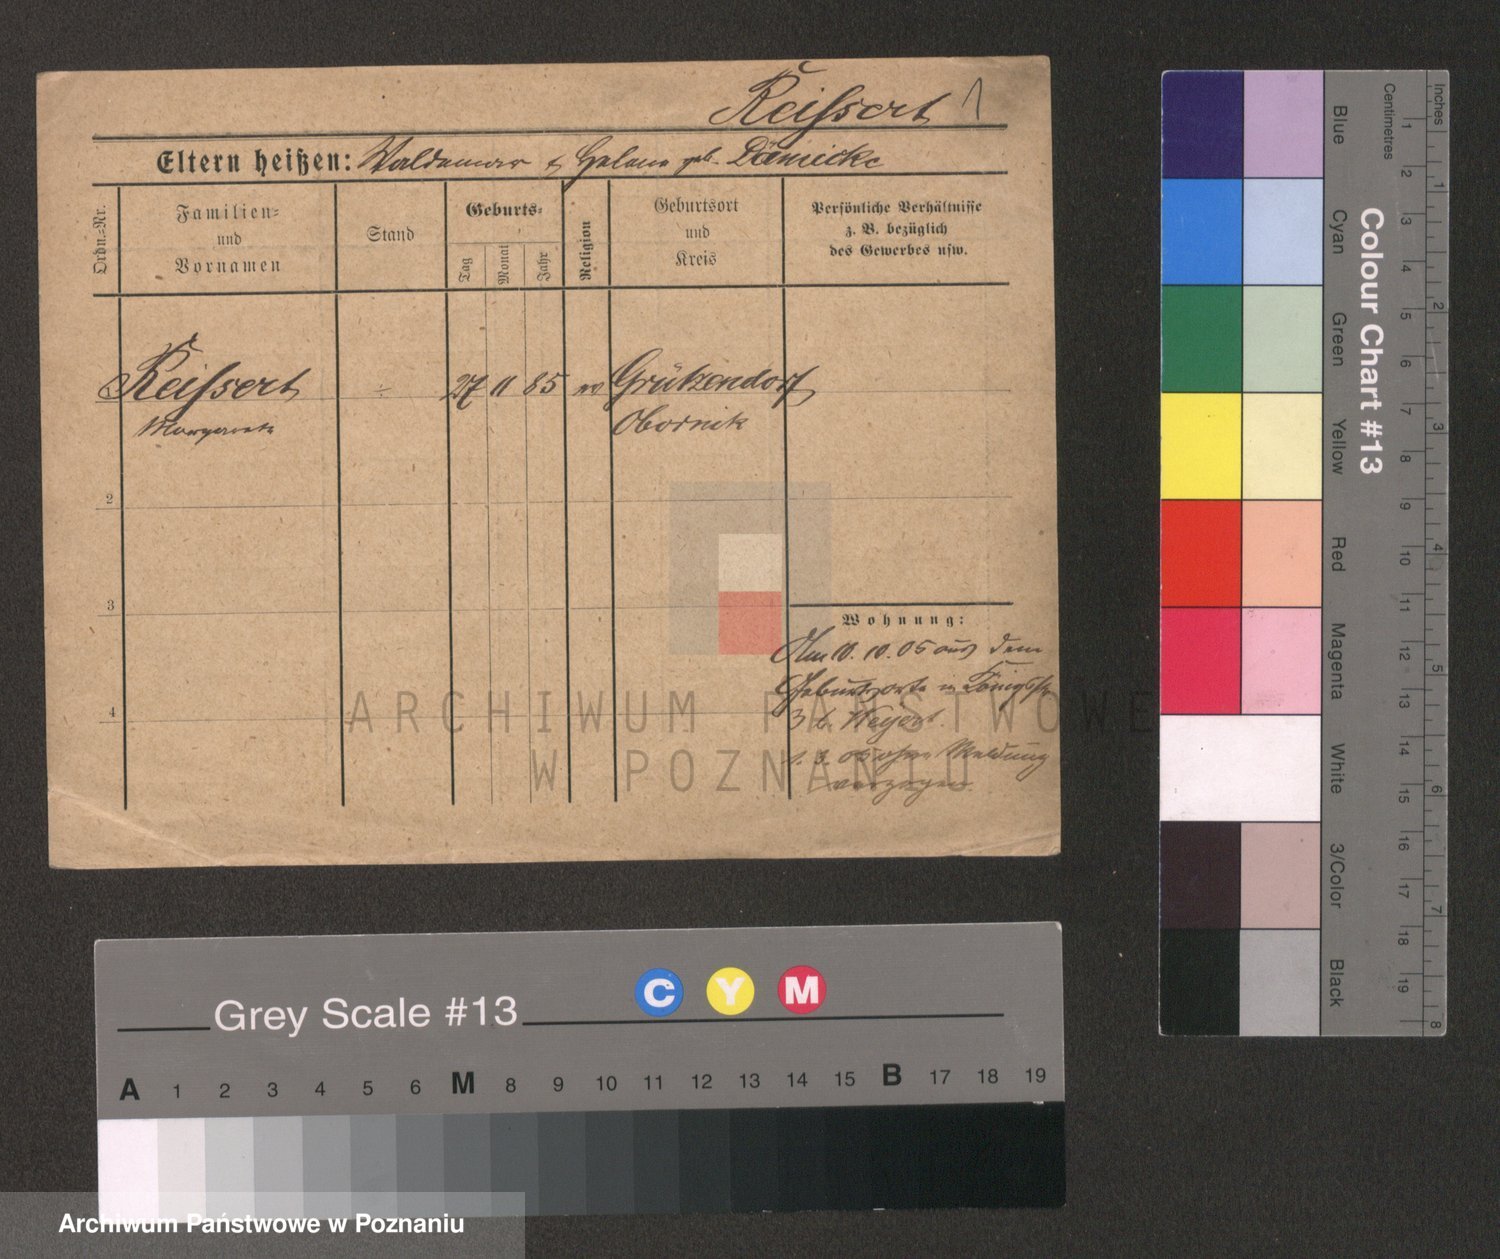 Reißert 1
Eltern heißen: Waldemar & Helene geb. Dämicke
Ordn.=Nr.
Familien=
und
Vornamen
Stand
Geburts=
Tag
Monat
Jahr
Religion
Geburtsort
und
Kreis
Persönliche Verhältnisse
z. B. bezüglich
des Gewerbes usw.
Reißert ÷ 27 11 85 ev Grützendorf
Margarete Obornik
2
3
4
Wohnung:
Am 10. 10. 05 aus dem
Geburtsorte n. Königstr
3 b. Weyert.
1. 3. 05 ohne Meldung
verzogen.
ARCHIWUM PAŃSTWOWE
W POZNANIU
Colour Chart #13
Blue
Cyan
Green
Yellow
Red
Magenta
White
3/Color
Black
Centimetres
1 2 3 4 5 6 7 8 9 10 11 12 13 14 15 16 17 18 19
Inches
1 2 3 4 5 6 7 8
Grey Scale #13
C Y M
A 1 2 3 4 5 6 M 8 9 10 11 12 13 14 15 B 17 18 19
Archiwum Państwowe w Poznaniu